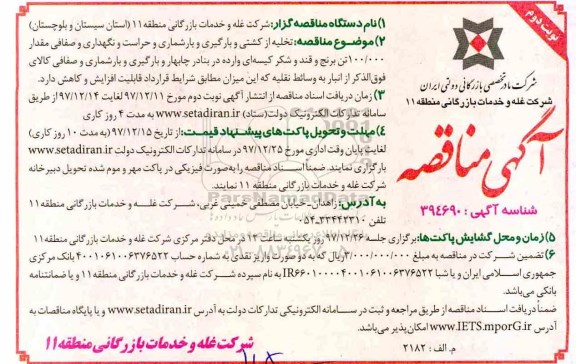 نوبت دوم
شرکت مادر تخصصی بازرگانی دولتی ایران
شرکت غله و خدمات بازرگانی منطقه ۱۱
آگهی مناقصه
شناسه آگهی : ۳۹۴۶۹۰
۱) نام دستگاه مناقصه گزار: شرکت غله و خدمات بازرگانی منطقه ۱۱ (استان سیستان و بلوچستان)
۲) موضوع مناقصه: تخلیه از کشتی و بارگیری و بارشماری و حراست و نگهداری و صفافی مقدار
۱۰۰/۰۰۰ تن برنج و قند و شکر کیسه‌ای وارده در بنادر چابهار و بارگیری و بارشماری و صفافی کالای
فوق‌الذکر از انبار به وسائط نقلیه که این میزان مطابق شرایط قرارداد قابلیت افزایش و کاهش دارد.
۳) زمان دریافت اسناد مناقصه از انتشار آگهی نوبت دوم مورخ ۹۷/۱۲/۱۱ لغایت ۹۷/۱۲/۱۴ از طریق
سامانه تدارکات الکترونیک دولت (ستاد) www.setadiran.ir به مدت ۴ روز کاری
۴) مهلت و تحویل پاکت های پیشنهاد قیمت: از تاریخ ۹۷/۱۲/۱۵ (به مدت ۱۰ روز کاری)
لغایت پایان وقت اداری مورخ ۹۷/۱۲/۲۵ در سامانه تدارکات الکترونیک دولت www.setadiran.ir
بارگزاری نمایند. ضمناً اسناد مناقصه را به صورت فیزیکی در پاکت مهر و موم شده تحویل دبیرخانه
شرکت غله و خدمات بازرگانی منطقه ۱۱ نمایند.
به آدرس: زاهدان- خیابان مصطفی خمینی غربی، شرکت غله و خدمات بازرگانی منطقه ۱۱
تلفن ۳۳۴۴۲۳۱۰-۰۵۴
۵) زمان و محل گشایش پاکت‌ها: برگزاری جلسه ۹۷/۱۲/۲۶ روز یکشنبه ساعت ۱۲ در محل دفتر مرکزی شرکت غله و خدمات بازرگانی منطقه ۱۱
۶) تضمین شرکت در مناقصه به مبلغ ۳/۰۰۰/۰۰۰/۰۰۰ ریال که به دو صورت واریز نقدی به شماره حساب ۴۰۰۱۰۶۱۰۰۶۳۷۶۵۲۲ بانک مرکزی
جمهوری اسلامی ایران و یا شبا IR۶۶۰۱۰۰۰۰۴۰۰۱۰۶۱۰۰۶۳۷۶۵۲۲ به نام سپرده شرکت غله و خدمات بازرگانی منطقه ۱۱ و یا ضمانتنامه
بانکی می‌باشد.
ضمناً دریافت اسناد مناقصه از طریق مراجعه و ثبت در سامانه الکترونیکی تدارکات دولت به آدرس www.setadiran.ir و یا پایگاه مناقصات به
آدرس www.IETS.mporG.ir امکان پذیر می‌باشد.
م. الف : ۲۱۸۲
شرکت غله و خدمات بازرگانی منطقه ۱۱